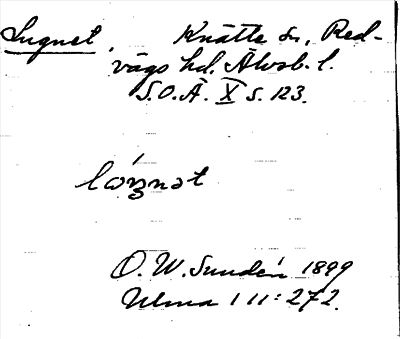 Lugnet, Knätte sn, Red-
vägs hd. Älvsb. l.
S.O.Ä. X s. 123.
O. W. Sundén 1899
Ulma 111:272.